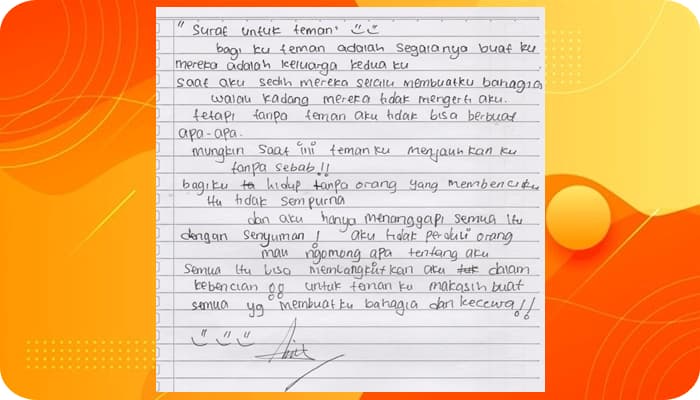 " Surat untuk teman "
bagi ku teman adalah segalanya buat ku
mereka adalah keluarga kedua ku
saat aku sedih mereka selalu membuatku bahagia
walau kadang mereka tidak mengerti aku.
tetapi tanpa teman aku tidak bisa berbuat
apa-apa.
mungkin saat ini temanku menjauhkan ku
tanpa sebab!!
bagiku hidup tanpa orang yang membenciku
itu tidak sempurna
dan aku hanya menanggapi semua itu
dengan senyuman! aku tidak perduli orang
mau ngomong apa tentang aku
semua itu bisa membangkitkan aku dalam
kebencian untuk teman ku makasih buat
semua yg membuatku bahagia dan kecewa!!